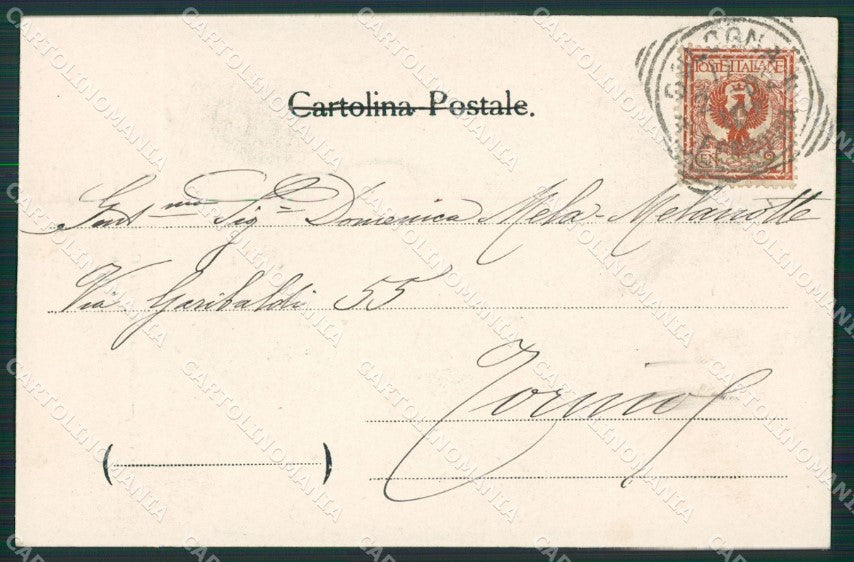 Cartolina Postale.
POSTE ITALIANE
Gent.ma Sig.a Domenica Mela-Melanotte
Via Garibaldi 55
Torino
(          )
CARTOLINOMANIA